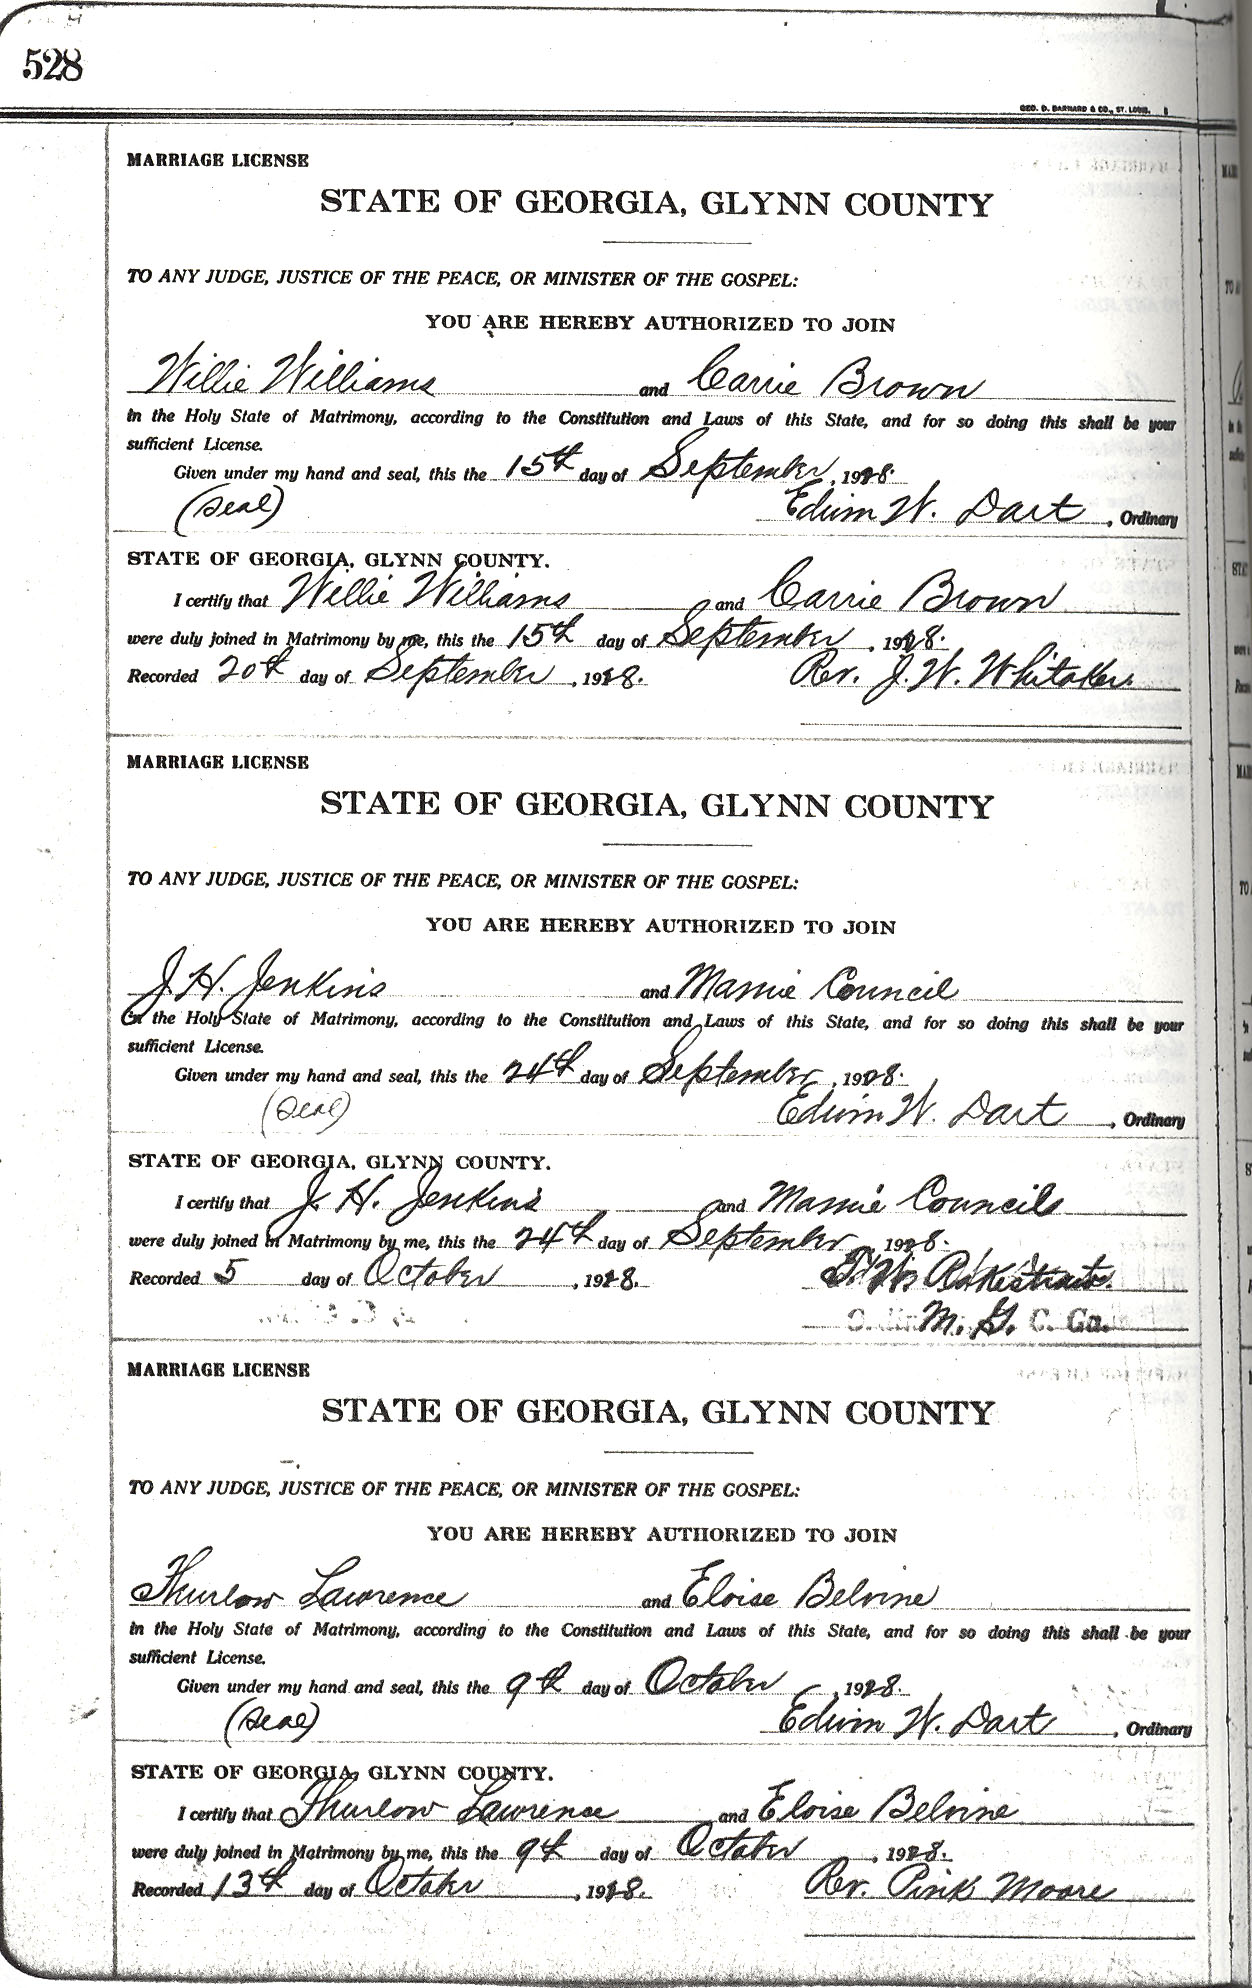 528
GEO. D. BARNARD & CO., ST. LOUIS.
MARRIAGE LICENSE
STATE OF GEORGIA, GLYNN COUNTY
TO ANY JUDGE, JUSTICE OF THE PEACE, OR MINISTER OF THE GOSPEL:
YOU ARE HEREBY AUTHORIZED TO JOIN
Willie Williams and Carrie Brown
in the Holy State of Matrimony, according to the Constitution and Laws of this State, and for so doing this shall be your
sufficient License.
Given under my hand and seal, this the 15th day of September, 1928.
(Seal) Edwin W. Dart, Ordinary
STATE OF GEORGIA, GLYNN COUNTY.
I certify that Willie Williams and Carrie Brown
were duly joined in Matrimony by me, this the 15th day of September, 1928.
Recorded 20th day of September, 1928. Rev. J. W. Whitaker.
MARRIAGE LICENSE
STATE OF GEORGIA, GLYNN COUNTY
TO ANY JUDGE, JUSTICE OF THE PEACE, OR MINISTER OF THE GOSPEL:
YOU ARE HEREBY AUTHORIZED TO JOIN
J. H. Jenkins and Mamie Council
in the Holy State of Matrimony, according to the Constitution and Laws of this State, and for so doing this shall be your
sufficient License.
Given under my hand and seal, this the 24th day of September, 1928.
(Seal) Edwin W. Dart, Ordinary
STATE OF GEORGIA, GLYNN COUNTY.
I certify that J. H. Jenkins and Mamie Councils
were duly joined in Matrimony by me, this the 24th day of September, 1928.
Recorded 5 day of October, 1928. W. Rakestraw.
M. G. C. Ga.
MARRIAGE LICENSE
STATE OF GEORGIA, GLYNN COUNTY
TO ANY JUDGE, JUSTICE OF THE PEACE, OR MINISTER OF THE GOSPEL:
YOU ARE HEREBY AUTHORIZED TO JOIN
Thurlow Lawrence and Eloise Belvine
in the Holy State of Matrimony, according to the Constitution and Laws of this State, and for so doing this shall be your
sufficient License.
Given under my hand and seal, this the 9th day of October, 1928.
(Seal) Edwin W. Dart, Ordinary
STATE OF GEORGIA, GLYNN COUNTY.
I certify that Thurlow Lawrence and Eloise Belvine
were duly joined in Matrimony by me, this the 9th day of October, 1928.
Recorded 13th day of October, 1928. Rev. Pink Moore